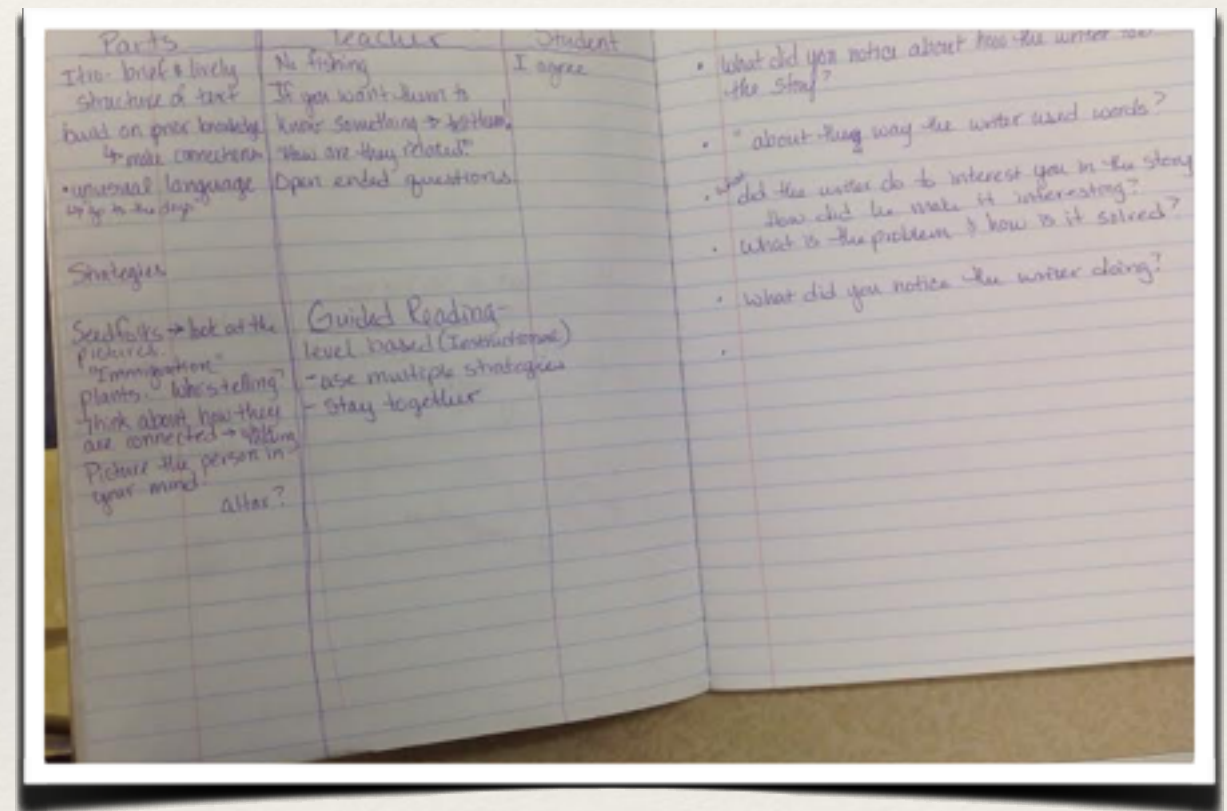 Parts
Itro- brief & lively
structure of text
build on prior knowledge
↳ make connections
• unusual language
↳ go to the
Strategies
Seedfolks → look at the
pictures.
"Immigration"
plants. Who's telling?
think about how they
are connected →
Picture the person in
your mind!
altar?
Teacher
No fishing
If you want them to
know something → tell them!
"How are they related?"
Open ended questions
Guided Reading-
level based (Instructional)
- use multiple strategies
- stay together
Student
I agree
• What did you notice about how the writer
the story?
• " about the way the writer used words?
• what did the writer do to interest you in the story
How did he make it interesting?
• What is the problem & how is it solved?
• What did you notice the writer doing?
•